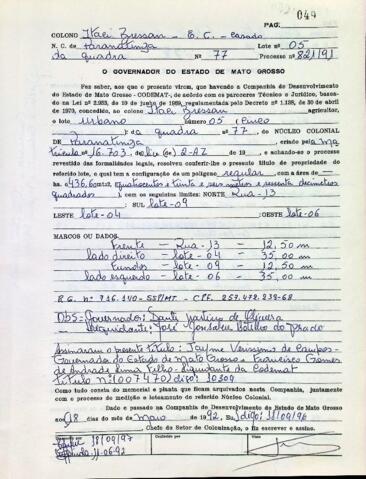 PAG. 049
COLONO Itali Bressan - E. C. - casado
N. C. de Paranatinga Lote nº 05
da quadra Nº 77 Processo 821/91
O GOVERNADOR DO ESTADO DE MATO GROSSO
Faz saber, aos que o presente virem, que havendo a Companhia de Desenvolvimento
do Estado de Mato Grosso - CODEMAT-, de acordo com os pareceres Técnico e Jurídico, baseado
na Lei nº 2.953, de 19 de junho de 1969, regulamentada pelo Decreto nº 1.138, de 30 de abril
de 1970, concedido, ao colono Itali Bressan agricultor,
o lote urbano número 05 (cinco)
da quadra nº 77, do NÚCLEO COLONIAL
DE Paranatinga criado pela ma
tricula nº 16.703, do livro 2-AZ de 19 e achando-se o processo
revestido das formalidades legais, resolveu conferir-lhe o presente título de propriedade do
referido lote, o qual tem a configuração de um polígono regular, com a área de
ha. 436,60m2 (quatrocentos e trinta e seis metros e sessenta decímetros
quadrados), com os seguintes limites: NORTE Rua-13
SUL lote-09
LESTE lote-04 OESTE lote-06
MARCOS OU DADOS
Frente - Rua-13 - 12,50 m
lado direito - lote-04 - 35,00 m
Fundos - lote-09 - 12,50 m
lado esquerdo - lote-06 - 35,00 m
OBS = Governador:
Liquidante: José
Assinaram o presente título: Jayme Verissimo de Campos -
Governador do Estado de Mato Grosso e Francisco Gomes
de Andrade Lima Filho - Liquidante da Codemat
Título nº (007470) digo: 10304
Como tudo consta do memorial e planta que ficam arquivados nesta Companhia, juntamente
com o processo de medição e loteamento do referido Núcleo Colonial.
Dado e passado na Companhia de Desenvolvimento do Estado de Mato Grosso
aos 18 dias do mês de maio de 1992, digo: 11/09/96
Chefe do Setor de Colonização, o fiz escrever e assino.
18/09/97 Conferido por Visto
11-06-92